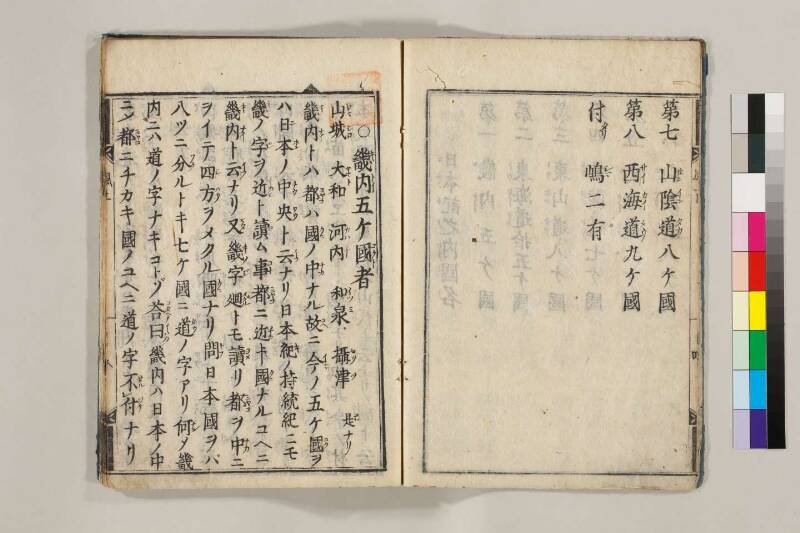 第七 山陰道八ケ國
第八 西海道九ケ國
付 嶋二有
○畿内五ケ國者
山城 大和 河内 和泉 攝津 是ナリ
畿内トハ都ハ國ノ中ナル故ニ今ノ五ケ國ヲ
ハ日本ノ中央ト云ナリ日本紀ノ持統紀ニモ
畿ノ字ヲ近ト讀ム事都ニ近キ國ナルユヘニ
畿内ト云ナリ又畿字廻トモ讀リ都ヲ中ニ
ヲイテ四方ヲメクル國ナリ問日本國ヲバ
八ツニ分ルトキ七ケ國ニ道ノ字アリ何ソ畿
内ニハ道ノ字ナキコトゾ答曰畿内ハ日本ノ中
ニメ都ニチカキ國ノユヘニ道ノ字不付ナリ